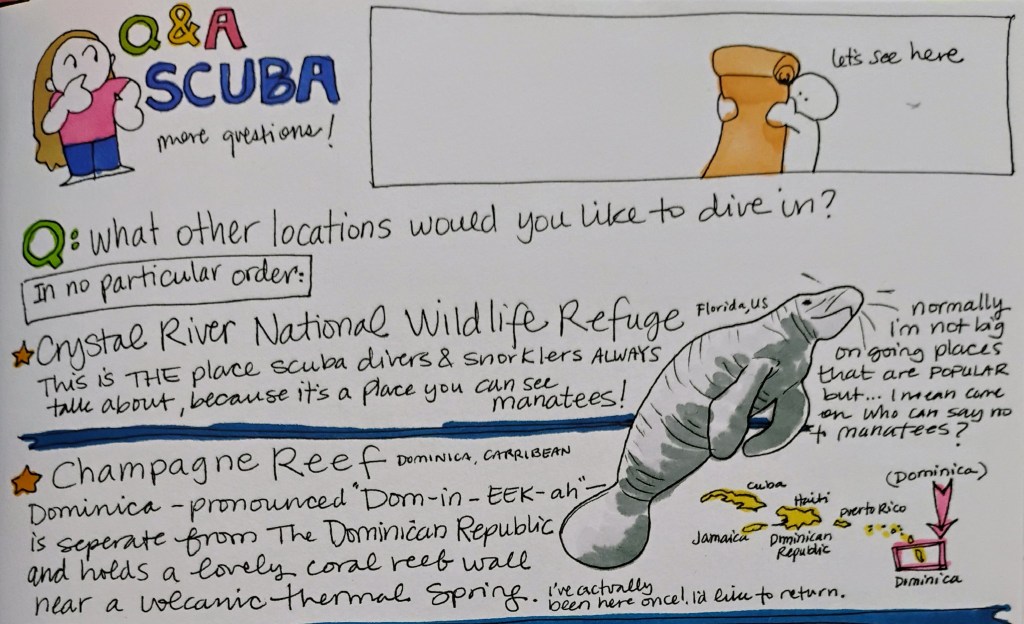 Q & A
SCUBA
more questions!
let's see here
Q: what other locations would you like to dive in?
In no particular order:
Crystal River National Wildlife Refuge Florida, US
This is THE place scuba divers & snorklers ALWAYS
talk about, because it's a place you can see
manatees!
normally
i'm not big
on going places
that are POPULAR
but... I mean come
on who can say no
to manatees?
Champagne Reef DOMINICA, CARRIBEAN
Dominica - pronounced "Dom-in-EEK-ah" -
is seperate from The Dominican Republic
and holds a lovely coral reef wall
near a volcanic thermal spring. i've actually
been here once! I'd like to return.
Cuba
Haiti
Puerto Rico
Jamaica
Dominican
Republic
(Dominica)
Dominica